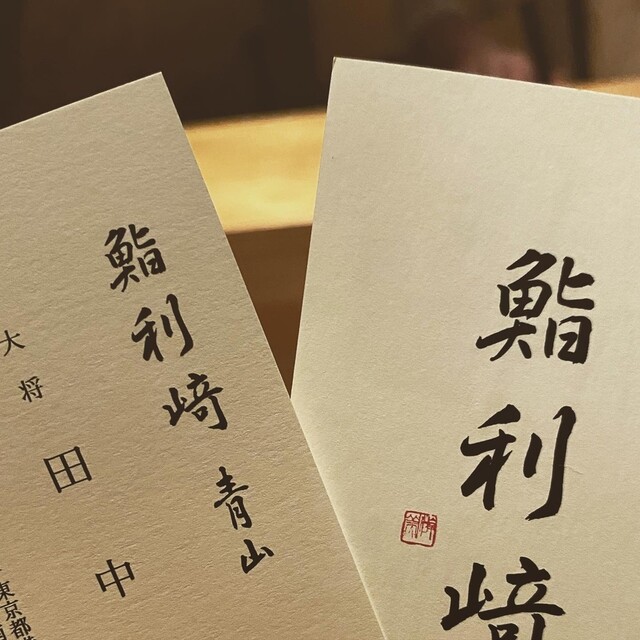 鮨利﨑
青山
大将
田中
東京都港
鮨利﨑